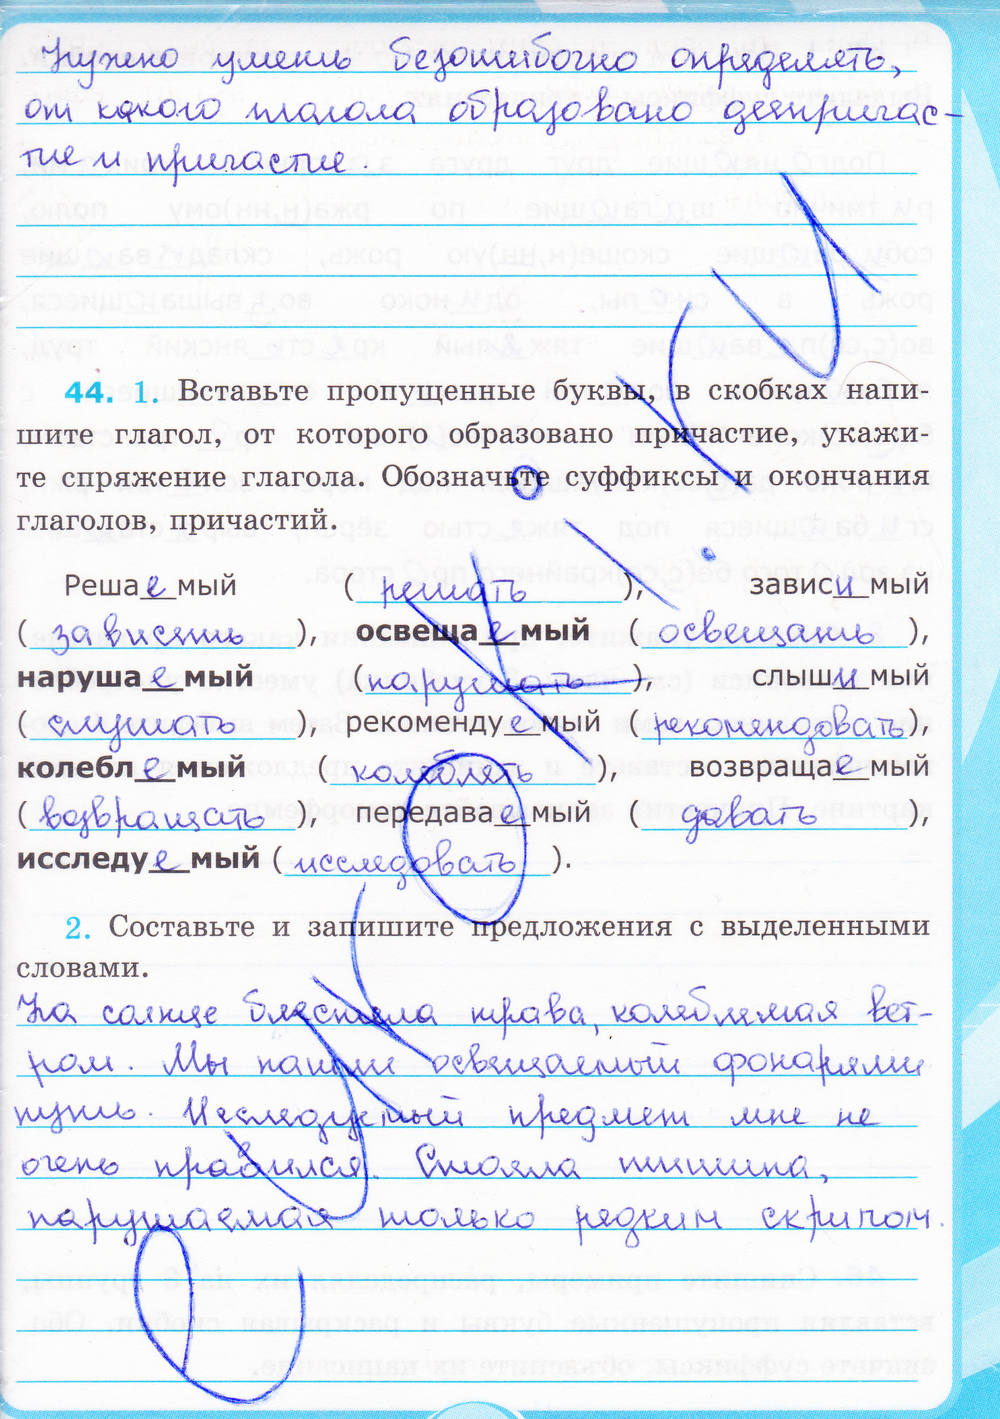 Нужно уметь безошибочно определять,
от какого глагола образовано деепричас-
тие и причастие.
44. 1. Вставьте пропущенные буквы, в скобках напи-
шите глагол, от которого образовано причастие, укажи
те спряжение глагола. Обозначьте суффиксы и окончания
глаголов, причастий.
Решаемый (решать), зависимый
(зависеть), освещаемый (освещать),
нарушаемый (нарушать), слышимый
(слушать), рекомендуемый (рекомендовать),
колеблемый (колеблеть), возвращаемый
(возвращать), передаваемый (давать),
исследуемый (исследовать).
2. Составьте и запишите предложения с выделенными
словами.
На солнце блестела трава, колеблемая вет-
ром. Мы нашли освещаемый фонарями
путь. Исследуемый предмет мне не
очень нравился. Стояла тишина,
нарушаемая только редким скрипом.